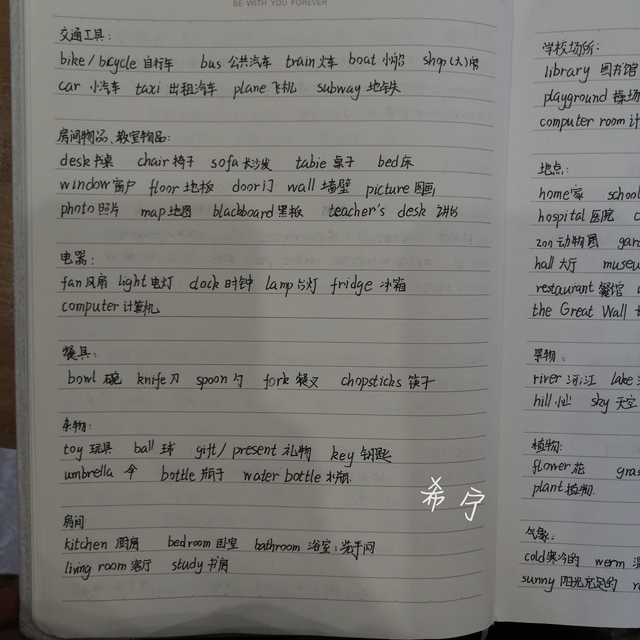 BE WITH YOU FOREVER
交通工具:
bike/bicycle 自行车 bus 公共汽车 train 火车 boat 小船 ship(大)船
car 小汽车 taxi 出租汽车 plane 飞机 subway 地铁
房间物品、教室物品:
desk 书桌 chair 椅子 sofa 长沙发 table 桌子 bed 床
window 窗户 floor 地板 door 门 wall 墙壁 picture 图画
photo 照片 map 地图 blackboard 黑板 teacher's desk 讲台
电器:
fan 风扇 light 电灯 clock 时钟 lamp 台灯 fridge 冰箱
computer 计算机
餐具:
bowl 碗 knife 刀 spoon 勺 fork 餐叉 chopsticks 筷子
杂物:
toy 玩具 ball 球 gift/present 礼物 key 钥匙
umbrella 伞 bottle 瓶子 water bottle 水瓶
希宁
房间
kitchen 厨房 bedroom 卧室 bathroom 浴室;洗手间
living room 客厅 study 书房
学校场所:
library 图书馆
playground 操场
computer room 计
地点:
home 家 school
hospital 医院
zoo 动物园
hall 大厅
restaurant 餐馆
the Great Wall
景物:
river 河;江 lake
hill 小山 sky 天空
植物:
flower 花
plant 植物
气象:
cold 寒冷的 werm
sunny 阳光充足的